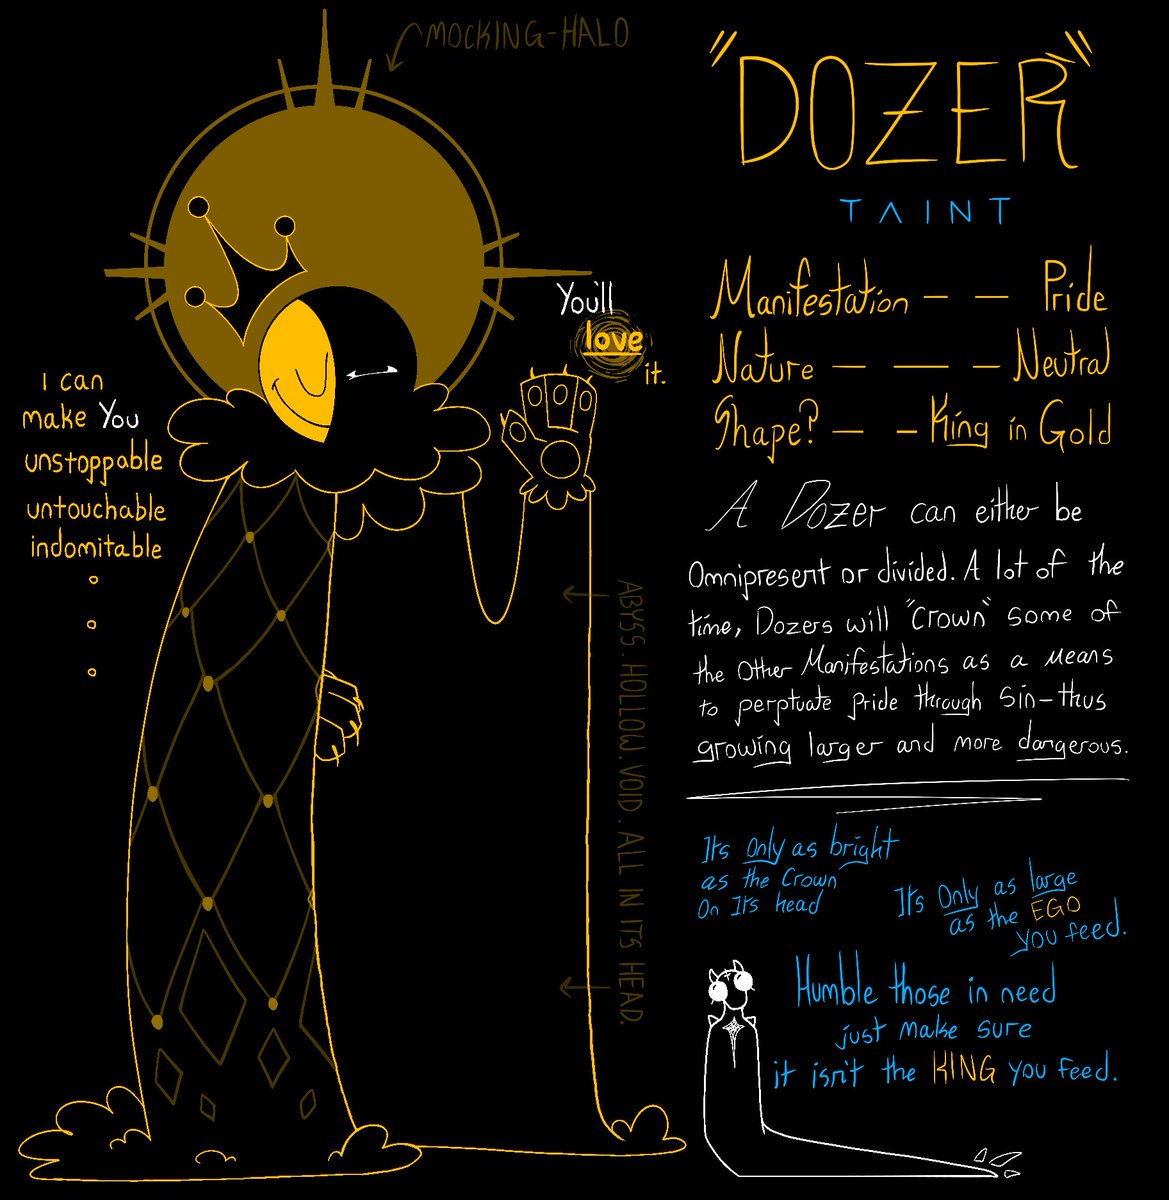 MOCKING-HALO
"DOZER"
TAINT
Manifestation — — Pride
Nature — — — Neutral
Shape? — — King in Gold
You'll
love
it.
I can
make You
unstoppable
untouchable
indomitable
A Dozer can either be
Omnipresent or divided. A lot of the
time, Dozers will "Crown" some of
the other Manifestations as a means
to perptuate pride through Sin-thus
growing larger and more dangerous.
ABYSS. HOLLOW. VOID. ALL IN ITS HEAD.
Its Only as bright
as the Crown
On Its head
Its Only as large
as the EGO
you feed.
Humble those in need
just make sure
it isn't the KING you feed.